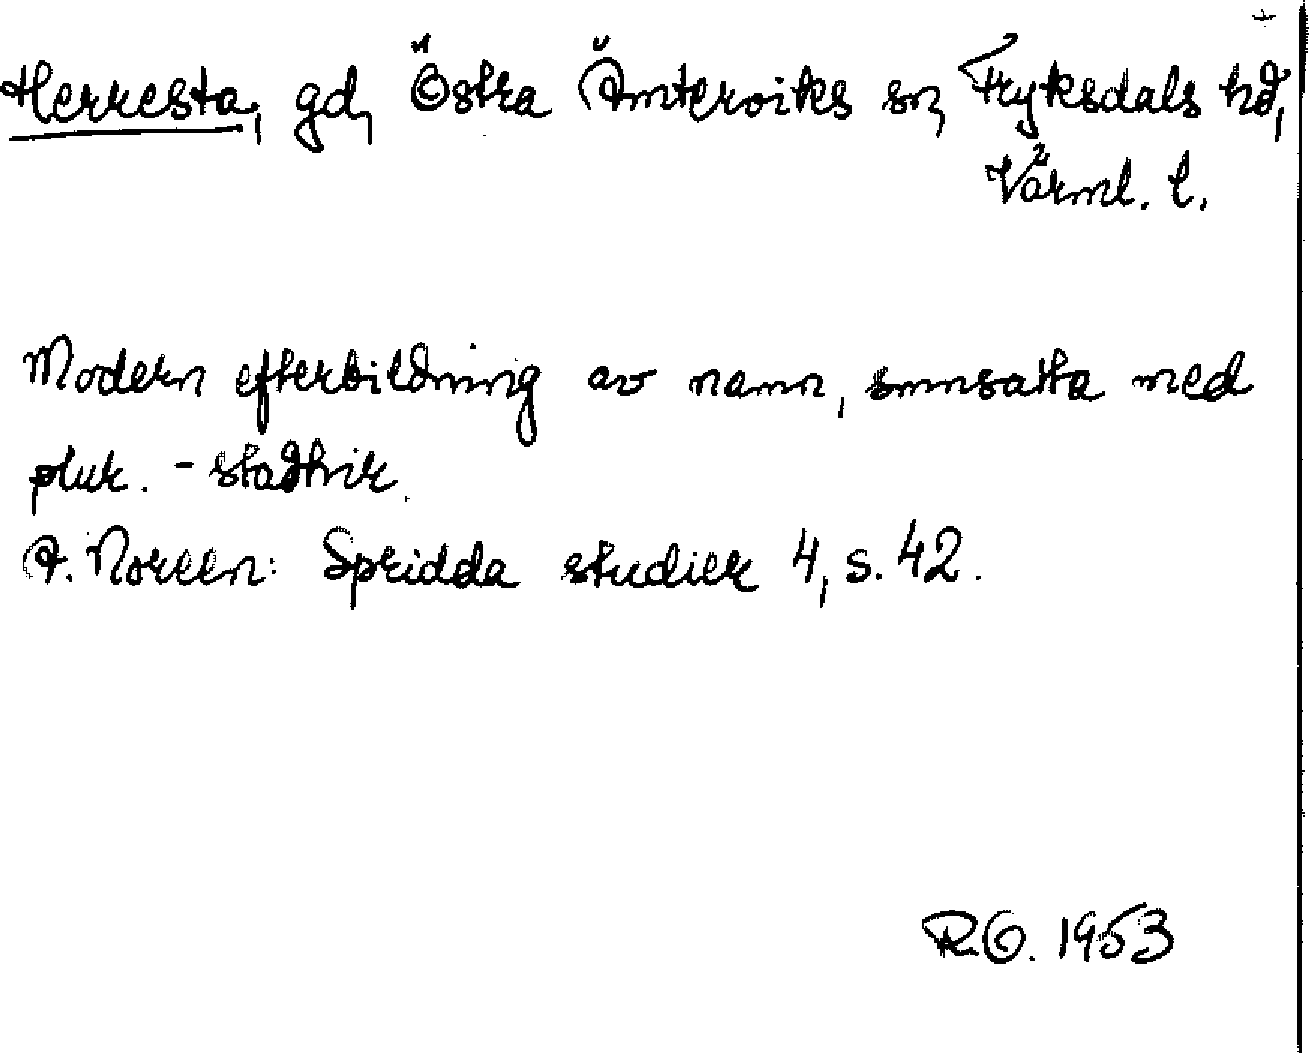 Herresta, gd, Östra Ämterviks sn, Fryksdals hd,
Värml. l.
Modern efterbildning av namn, smnsatta med
plur. -staðhir.
A. Noreen: Spridda studier 4, s. 42.
R.O. 1953